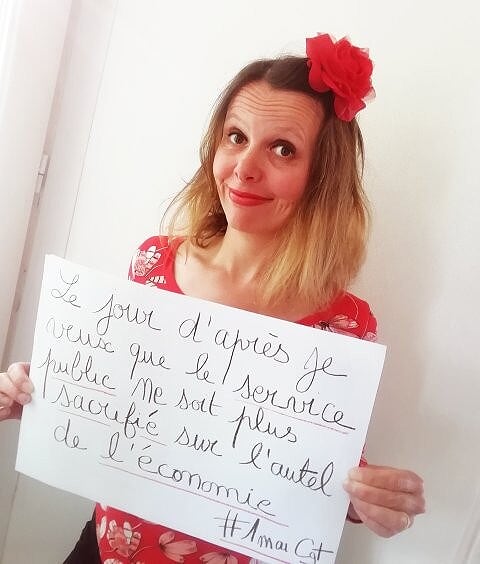 Le jour d'après je
veux que le service
public ne soit plus
sacrifié sur l'autel
de l'économie
#1mai Cgt